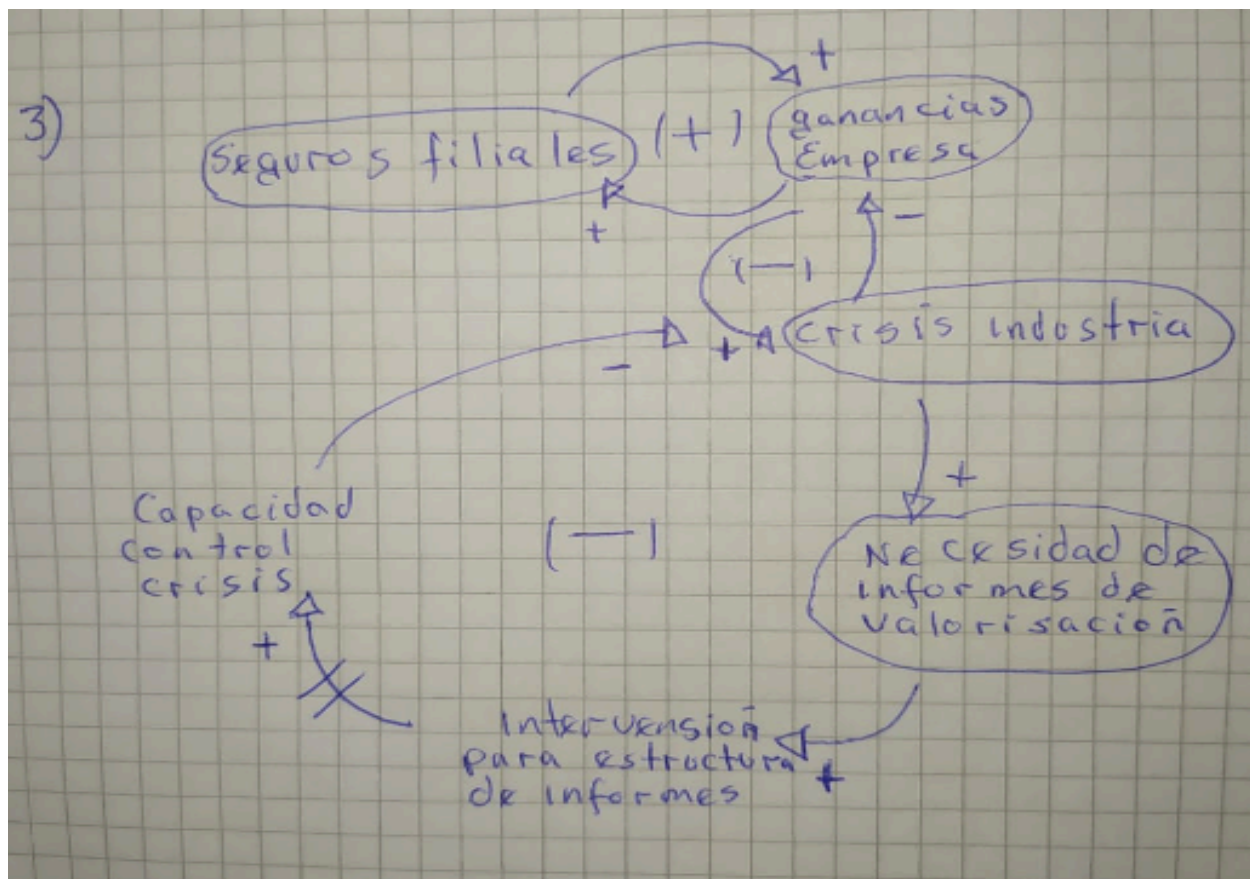 3)
+
Seguros filiales
(+)
ganancias
Empresa
+
-
(-)
+
Crisis indostria
-
+
Capacidad
control
crisis
(-)
Necesidad de
informes de
valorisación
+
Intervensión
para estructura
de informes
+